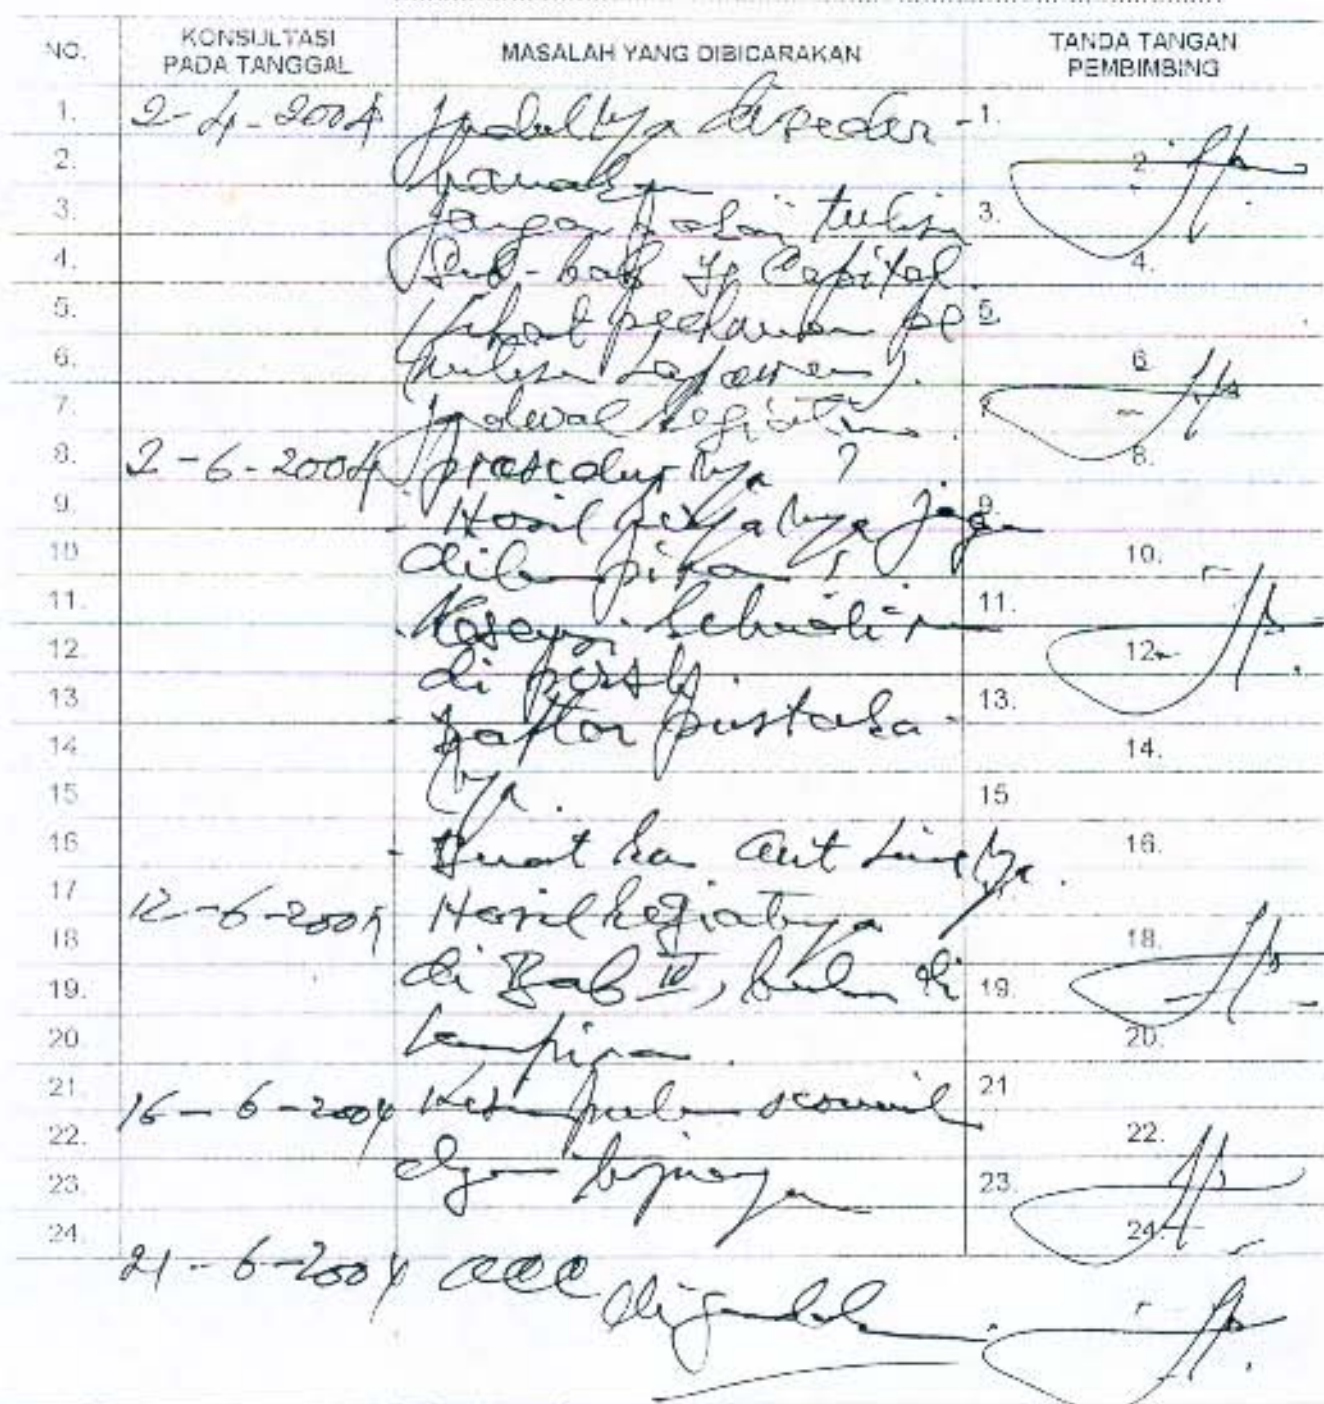 NO. KONSULTASI PADA TANGGAL MASALAH YANG DIBICARAKAN TANDA TANGAN PEMBIMBING
1. 2-4-2004 Judulnya diseder- 1.
2. hanakan 2.
3. Jangan pakai tulisan 3.
4. Sub-bab yg Capital. 4.
5. (Lihat pedoman pe 5.
6. nulisan Laporan). 6.
7. Jadwal kegiatan.
8. 2-6-2004 prosedurnya ? 8.
9. - Hasil nya jangan 9.
10. dilampirkan ! 10.
11. 11.
12. di 12.
13. - Daftar pustaka- 13.
14. nya. 14.
15 15
16. - Buat kan out line nya. 16.
17 12-6-2004 Hasil kegiatannya
18 di Bab IV, bukan di 18.
19. 19.
20. lampiran. 20.
21. 16-6-2004 Kesimpulan sesuai 21
22. dgn tujuannya 22.
23. 23.
24. 24.
21-6-2004 acc digandakan.